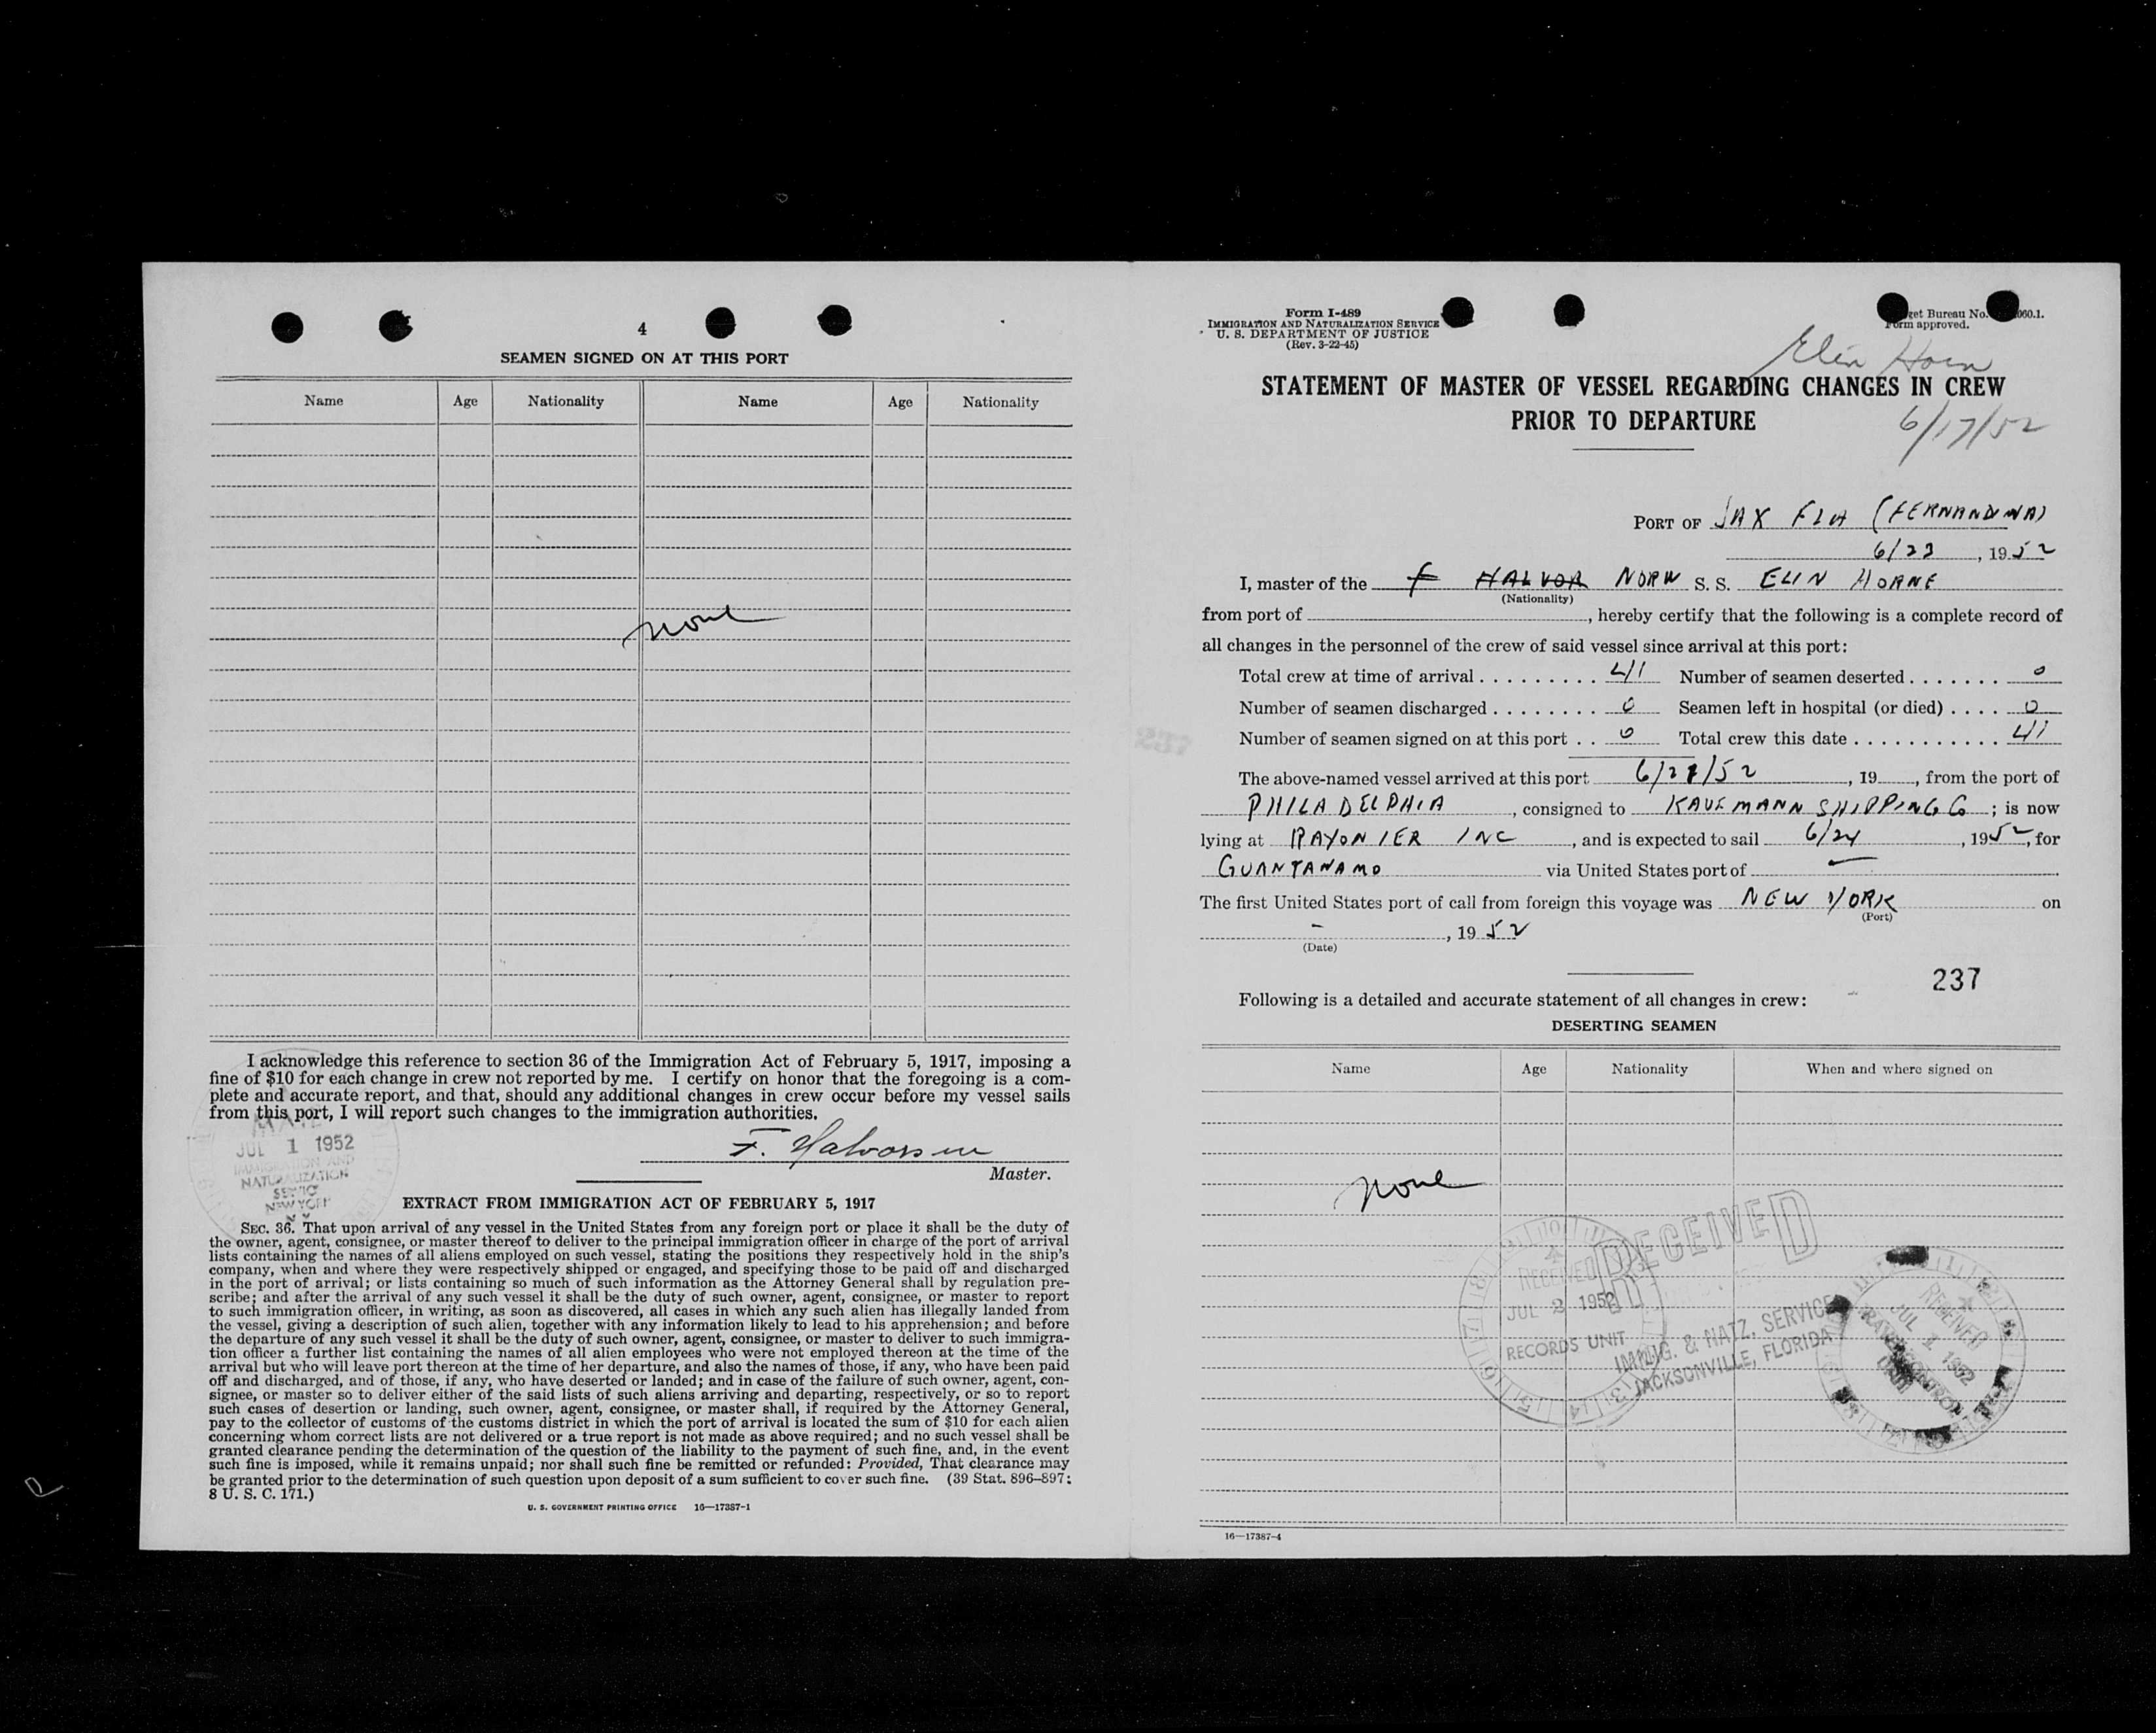 4
SEAMEN SIGNED ON AT THIS PORT
Name Age Nationality Name Age Nationality
none
I acknowledge this reference to section 36 of the Immigration Act of February 5, 1917, imposing a
fine of $10 for each change in crew not reported by me. I certify on honor that the foregoing is a com-
plete and accurate report, and that, should any additional changes in crew occur before my vessel sails
from this port, I will report such changes to the immigration authorities.
JUL 1 1952
IMMIGRATION AND
NATURALIZATION
NEW YORK
F. Halvorsen
Master.
EXTRACT FROM IMMIGRATION ACT OF FEBRUARY 5, 1917
SEC. 36. That upon arrival of any vessel in the United States from any foreign port or place it shall be the duty of
the owner, agent, consignee, or master thereof to deliver to the principal immigration officer in charge of the port of arrival
lists containing the names of all aliens employed on such vessel, stating the positions they respectively hold in the ship's
company, when and where they were respectively shipped or engaged, and specifying those to be paid off and discharged
in the port of arrival; or lists containing so much of such information as the Attorney General shall by regulation pre-
scribe; and after the arrival of any such vessel it shall be the duty of such owner, agent, consignee, or master to report
to such immigration officer, in writing, as soon as discovered, all cases in which any such alien has illegally landed from
the vessel, giving a description of such alien, together with any information likely to lead to his apprehension; and before
the departure of any such vessel it shall be the duty of such owner, agent, consignee, or master to deliver to such immigra-
tion officer a further list containing the names of all alien employees who were not employed thereon at the time of the
arrival but who will leave port thereon at the time of her departure, and also the names of those, if any, who have been paid
off and discharged, and of those, if any, who have deserted or landed; and in case of the failure of such owner, agent, con-
signee, or master so to deliver either of the said lists of such aliens arriving and departing, respectively, or so to report
such cases of desertion or landing, such owner, agent, consignee, or master shall, if required by the Attorney General,
pay to the collector of customs of the customs district in which the port of arrival is located the sum of $10 for each alien
concerning whom correct lists are not delivered or a true report is not made as above required; and no such vessel shall be
granted clearance pending the determination of the question of the liability to the payment of such fine, and, in the event
such fine is imposed, while it remains unpaid; nor shall such fine be remitted or refunded: Provided, That clearance may
be granted prior to the determination of such question upon deposit of a sum sufficient to cover such fine. (39 Stat. 896–897;
8 U. S. C. 171.)
U. S. GOVERNMENT PRINTING OFFICE 16—17387-1
Form I-489
IMMIGRATION AND NATURALIZATION SERVICE
U. S. DEPARTMENT OF JUSTICE
(Rev. 3-22-45)
Bureau No. 060.1.
Form approved.
Elin Horn
STATEMENT OF MASTER OF VESSEL REGARDING CHANGES IN CREW
PRIOR TO DEPARTURE
6/17/52
PORT OF JAX FLA (FERNANDINA)
6/23, 1952
I, master of the F HALVOR NORW S. S. ELIN HORNE
(Nationality)
from port of , hereby certify that the following is a complete record of
all changes in the personnel of the crew of said vessel since arrival at this port:
Total crew at time of arrival 41 Number of seamen deserted 0
Number of seamen discharged 0 Seamen left in hospital (or died) 0
Number of seamen signed on at this port 0 Total crew this date 41
The above-named vessel arrived at this port , 19 , from the port of
PHILADELPHIA, consigned to KAUFMANN SHIPPING Co; is now
lying at RAYONIER INC, and is expected to sail 6/24, 1952, for
GUANTANAMO via United States port of —
The first United States port of call from foreign this voyage was NEW YORK on
(Port)
-, 1952
(Date)
237
Following is a detailed and accurate statement of all changes in crew:
DESERTING SEAMEN
Name Age Nationality When and where signed on
none
RECEIVED
IMMIG. & NATZ. SERVICE
JACKSONVILLE, FLORIDA
RECEIVED
JUL 2 1952
RECORDS UNIT
RECEIVED
JUL 1 1952
16—17387-4